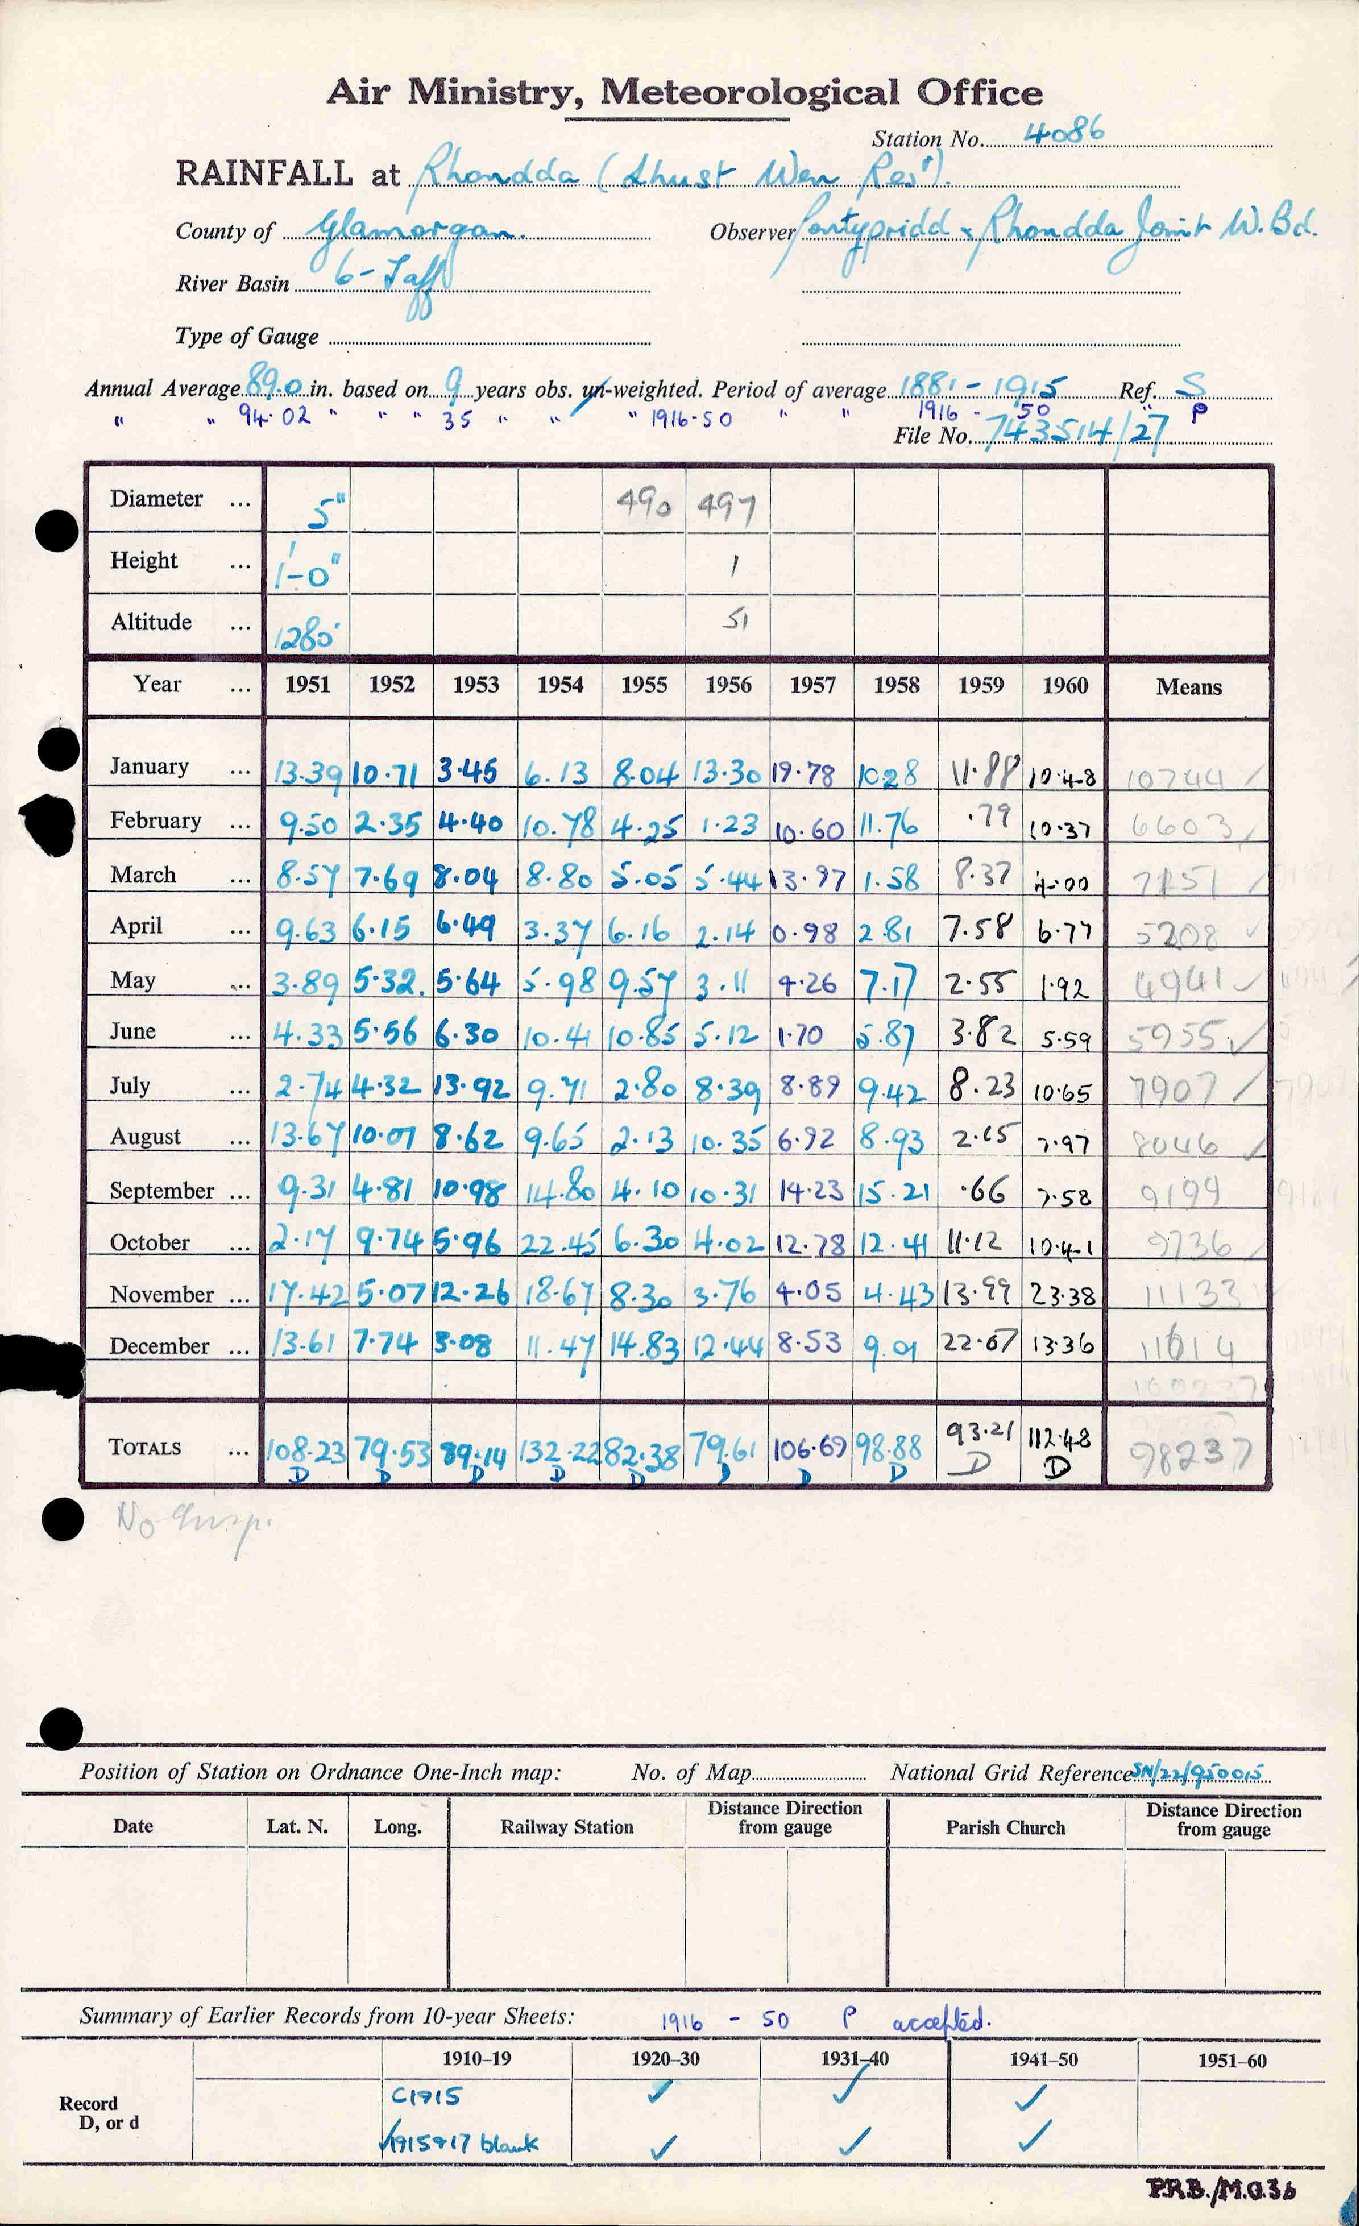 Air Ministry, Meteorological Office
Station No. 4086
RAINFALL at Rhondda (Lluest Wen Resr).
County of Glamorgan. Observer Pontypridd & Rhondda Joint W. Bd.
River Basin 6 - Taff
Type of Gauge
Annual Average 89.0 in. based on 9 years obs. un-weighted. Period of average 1881 - 1915 Ref. S
" " 94.02 " " " 35 " " " 1916-50 " " 1916 - 50 " P
File No. 743514/27
Diameter ... 5" 490 497
Height ... 1'-0" 1
Altitude ... 1280' 51
Year ... 1951 1952 1953 1954 1955 1956 1957 1958 1959 1960 Means
January ... 13.39 10.71 3.45 6.13 8.04 13.30 19.78 10.28 11.88 10.48 10744
February ... 9.50 2.35 4.40 10.78 4.25 1.23 10.60 11.76 .79 10.37 6603
March ... 8.57 7.69 8.04 8.80 5.05 5.44 13.97 1.58 8.37 4.00 7151
April ... 9.63 6.15 6.49 3.37 6.16 2.14 0.98 2.81 7.58 6.77 5208
May ... 3.89 5.32 5.64 5.98 9.57 3.11 4.26 7.17 2.55 1.92 4941
June ... 4.33 5.56 6.30 10.41 10.85 5.12 1.70 5.87 3.82 5.59 5955
July ... 2.74 4.32 13.92 9.71 2.80 8.39 8.89 9.42 8.23 10.65 7907
August ... 13.67 10.07 8.62 9.65 2.13 10.35 6.92 8.93 2.15 7.97 8046
September ... 9.31 4.81 10.98 14.80 4.10 10.31 14.23 15.21 .66 7.58 9199
October ... 2.17 9.74 5.96 22.45 6.30 4.02 12.78 12.41 11.12 10.41 9736
November ... 17.42 5.07 12.26 18.67 8.30 3.76 4.05 4.43 13.99 23.38 11133
December ... 13.61 7.74 3.08 11.47 14.83 12.44 8.53 9.01 22.07 13.36 11614
TOTALS ... 108.23 79.53 89.14 132.22 82.38 79.61 106.69 98.88 93.21 112.48 98237
D D D D D D D D D D
No Insp.
Position of Station on Ordnance One-Inch map: No. of Map National Grid Reference SN/22/950015
Date Lat. N. Long. Railway Station Distance Direction from gauge Parish Church Distance Direction from gauge
Summary of Earlier Records from 10-year Sheets: 1916 - 50 P accepted.
1910–19 1920–30 1931–40 1941–50 1951–60
Record D, or d
C1915 ✓ ✓ ✓
1915&17 blank ✓ ✓ ✓
P.R.B./M.O.36